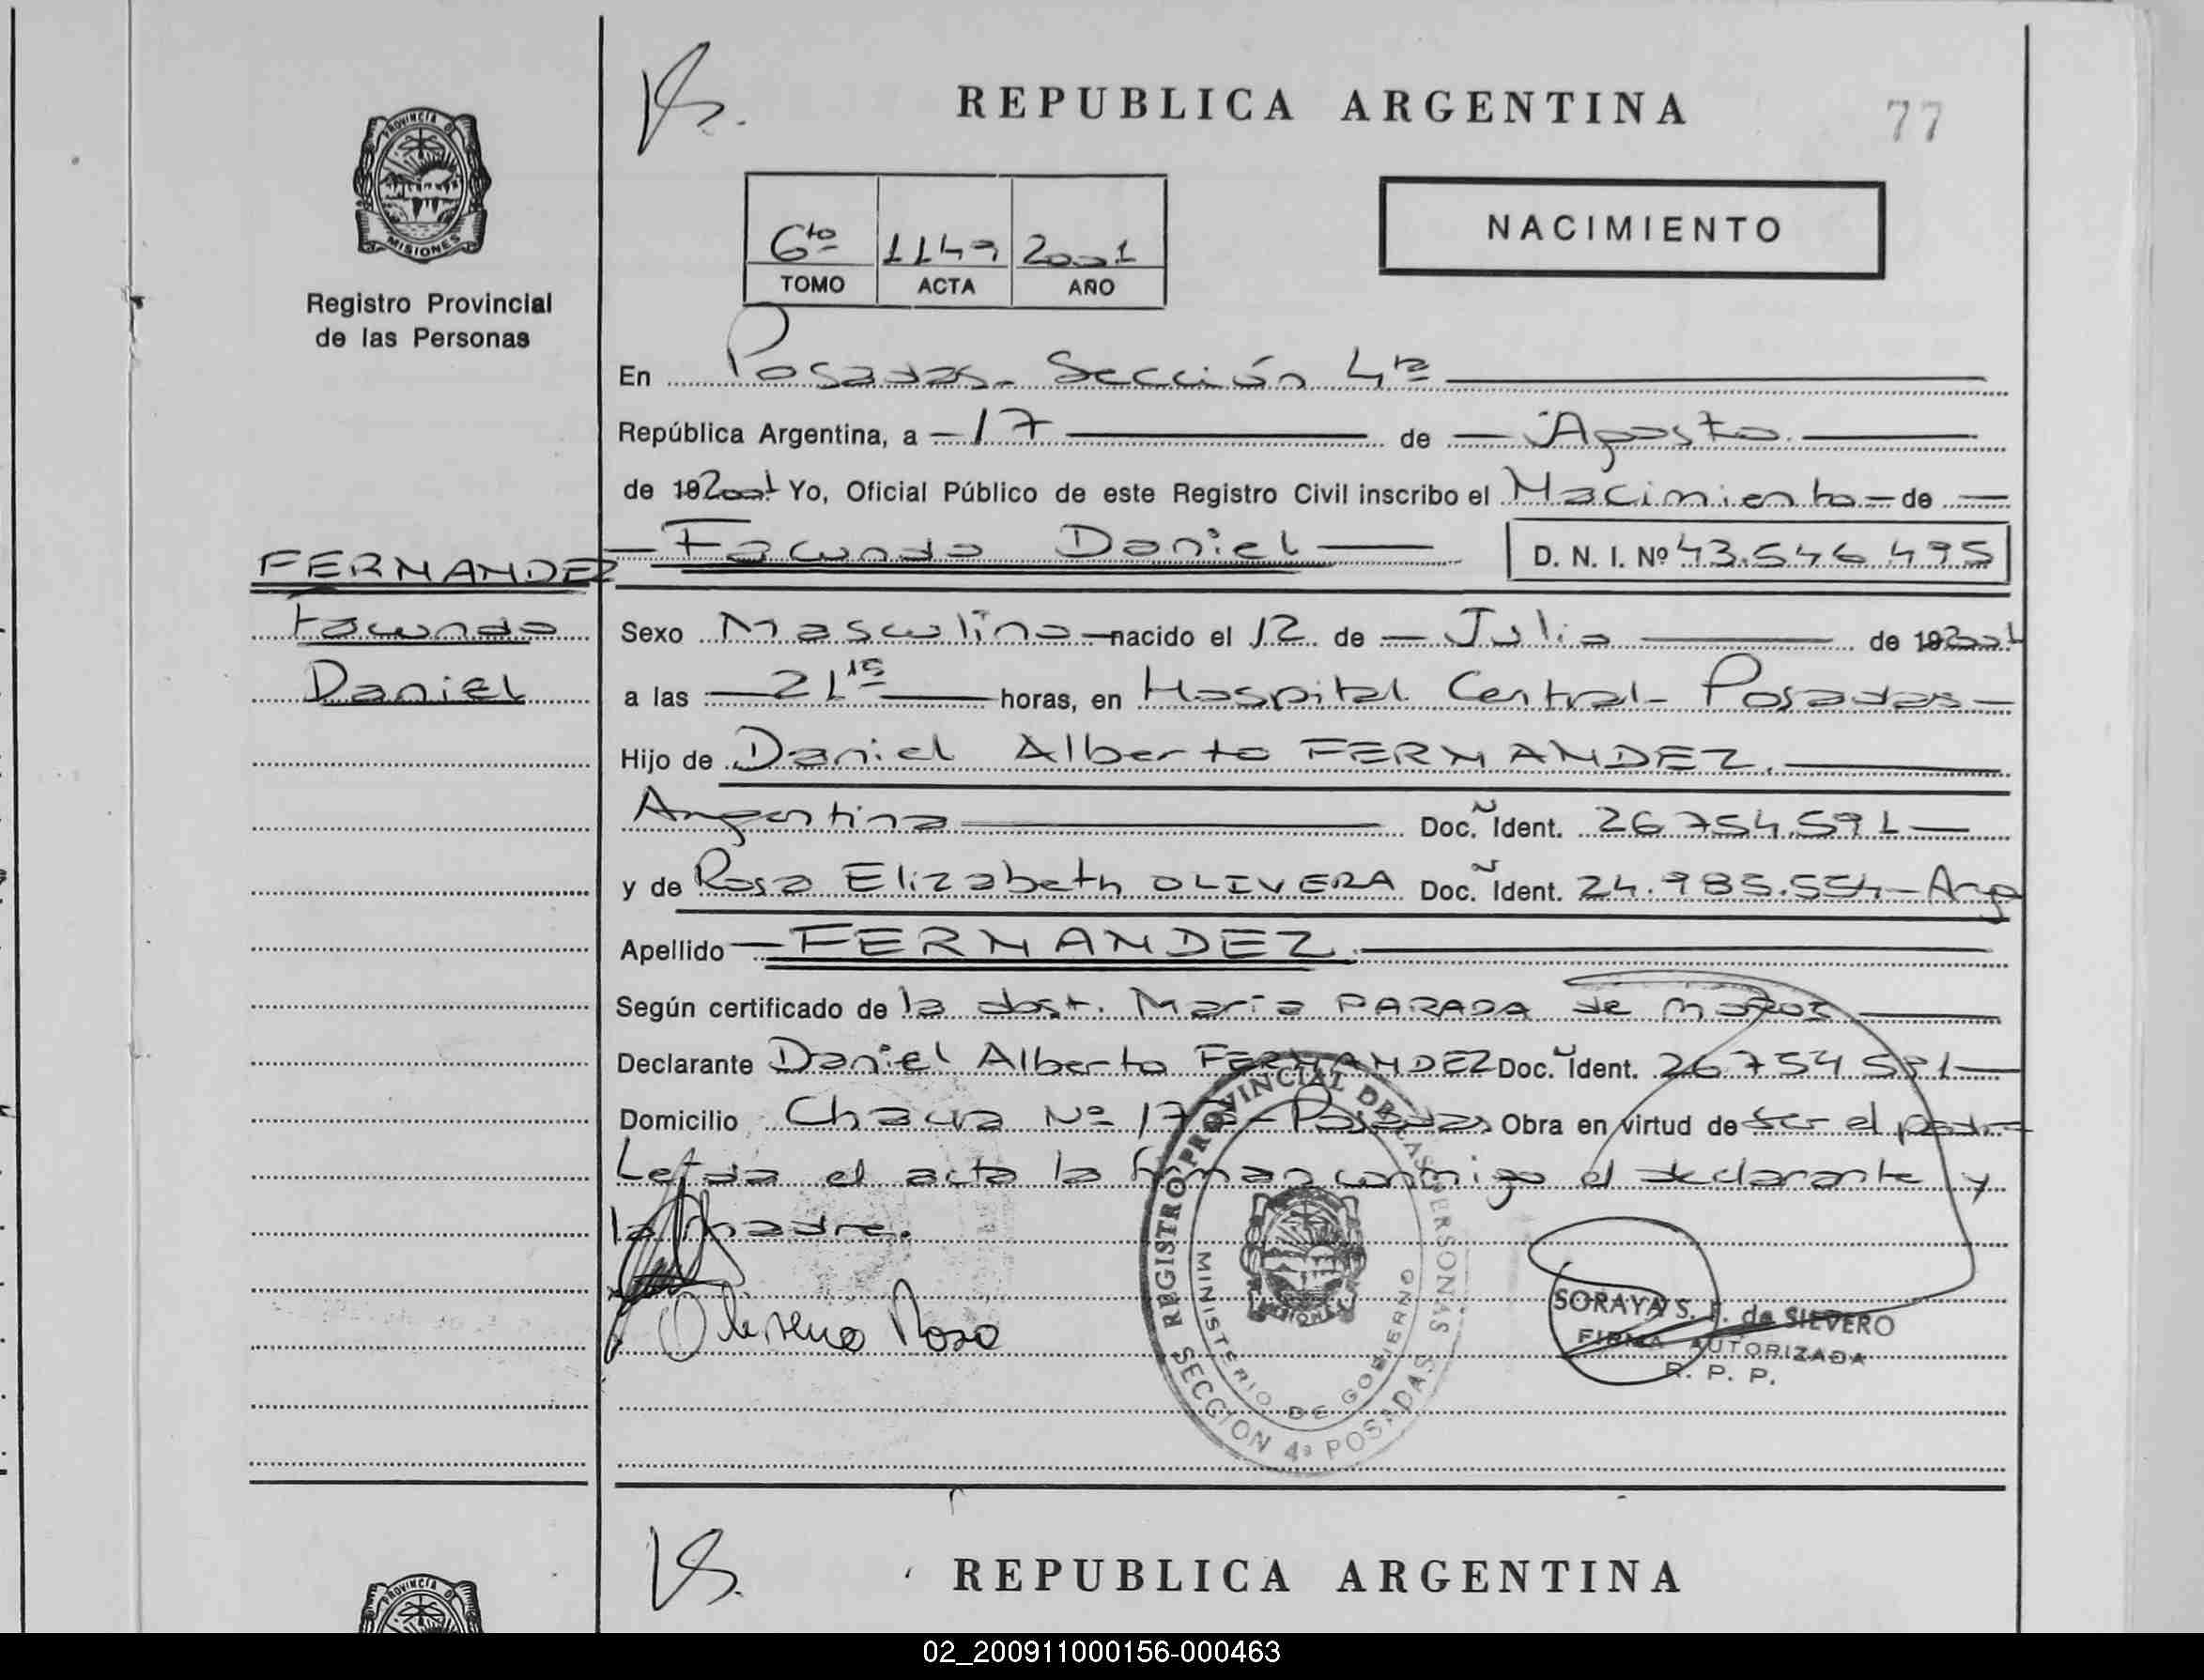 REPUBLICA ARGENTINA
77
PROVINCIA DE MISIONES
Registro Provincial
de las Personas
6to 1149 2001
TOMO ACTA AÑO
NACIMIENTO
En Posadas - Sección 4ta
República Argentina, a - 17 de - Agosto
de 192001 Yo, Oficial Público de este Registro Civil inscribo el Nacimiento - de
FERNANDEZ
Facundo
Daniel
Facundo Daniel D. N. I. Nº 43.546.495
Sexo Masculino - nacido el 12 de - Julio de 192001
a las 21 15 horas, en Hospital Central - Posadas -
Hijo de Daniel Alberto FERNANDEZ.
Argentina Doc. Ident. 26 754.591 -
y de Rosa Elizabeth OLIVERA Doc. Ident. 24.985.554 - Arg
Apellido - FERNANDEZ.
Según certificado de la obst. María PARADA de
Declarante Daniel Alberto FERNANDEZ Doc. Ident. 26 754 591 -
Domicilio Nº Posadas Obra en virtud de ser el padre
Leída el acta la firman conmigo el declarante y
la madre.
Olivera Rosa
REGISTRO PROVINCIAL DE LAS PERSONAS
MINISTERIO DE GOBIERNO
SECCION 4ª POSADAS
MISIONES
SORAYA S. F. de SILVERO
FIRMA AUTORIZADA
R. P. P.
REPUBLICA ARGENTINA
PROVINCIA DE
02_200911000156-000463